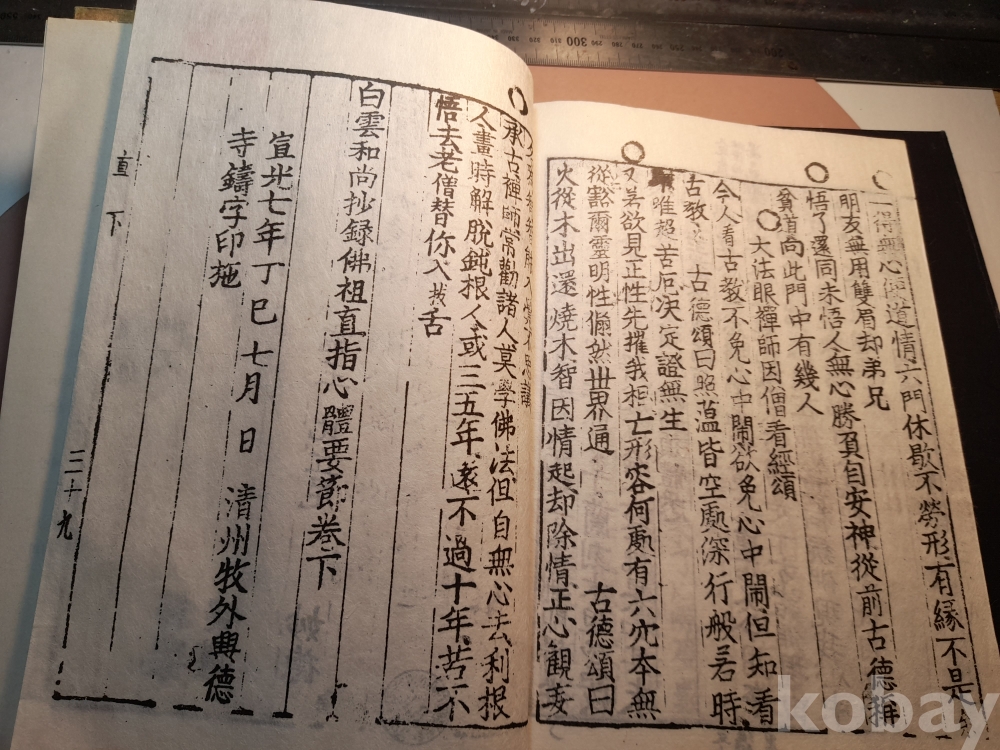 一得無心便道情六門休歇不勞形有緣不是
明友無用雙眉却弟兄
悟了還同未悟人無心勝負自安神從前古德稱
貧道向此門中有幾人
大法眼禪師因僧看經頌
今人看古教不免心中鬧欲免心中鬧但知看
古教 古德頌曰照蘊皆空處深行般若時
唯超苦厄決定證無生
又若欲見正性先摧我相亡形容何處有六穴本無
從豁爾靈明性翛然世界通 古德頌曰
火從木出還燒木智因情起却除情正心觀妄
承古禪師常勸諸人莫學佛法但自無心去利根
人晝時解脫鈍根人或三五年遠不過十年若不
悟去老僧替你入拔舌
白雲和尚抄録佛祖直指心體要節卷下
宣光七年丁巳七月 日 清州牧外興德
寺鑄字印施
直 下 三十九
300
kobay